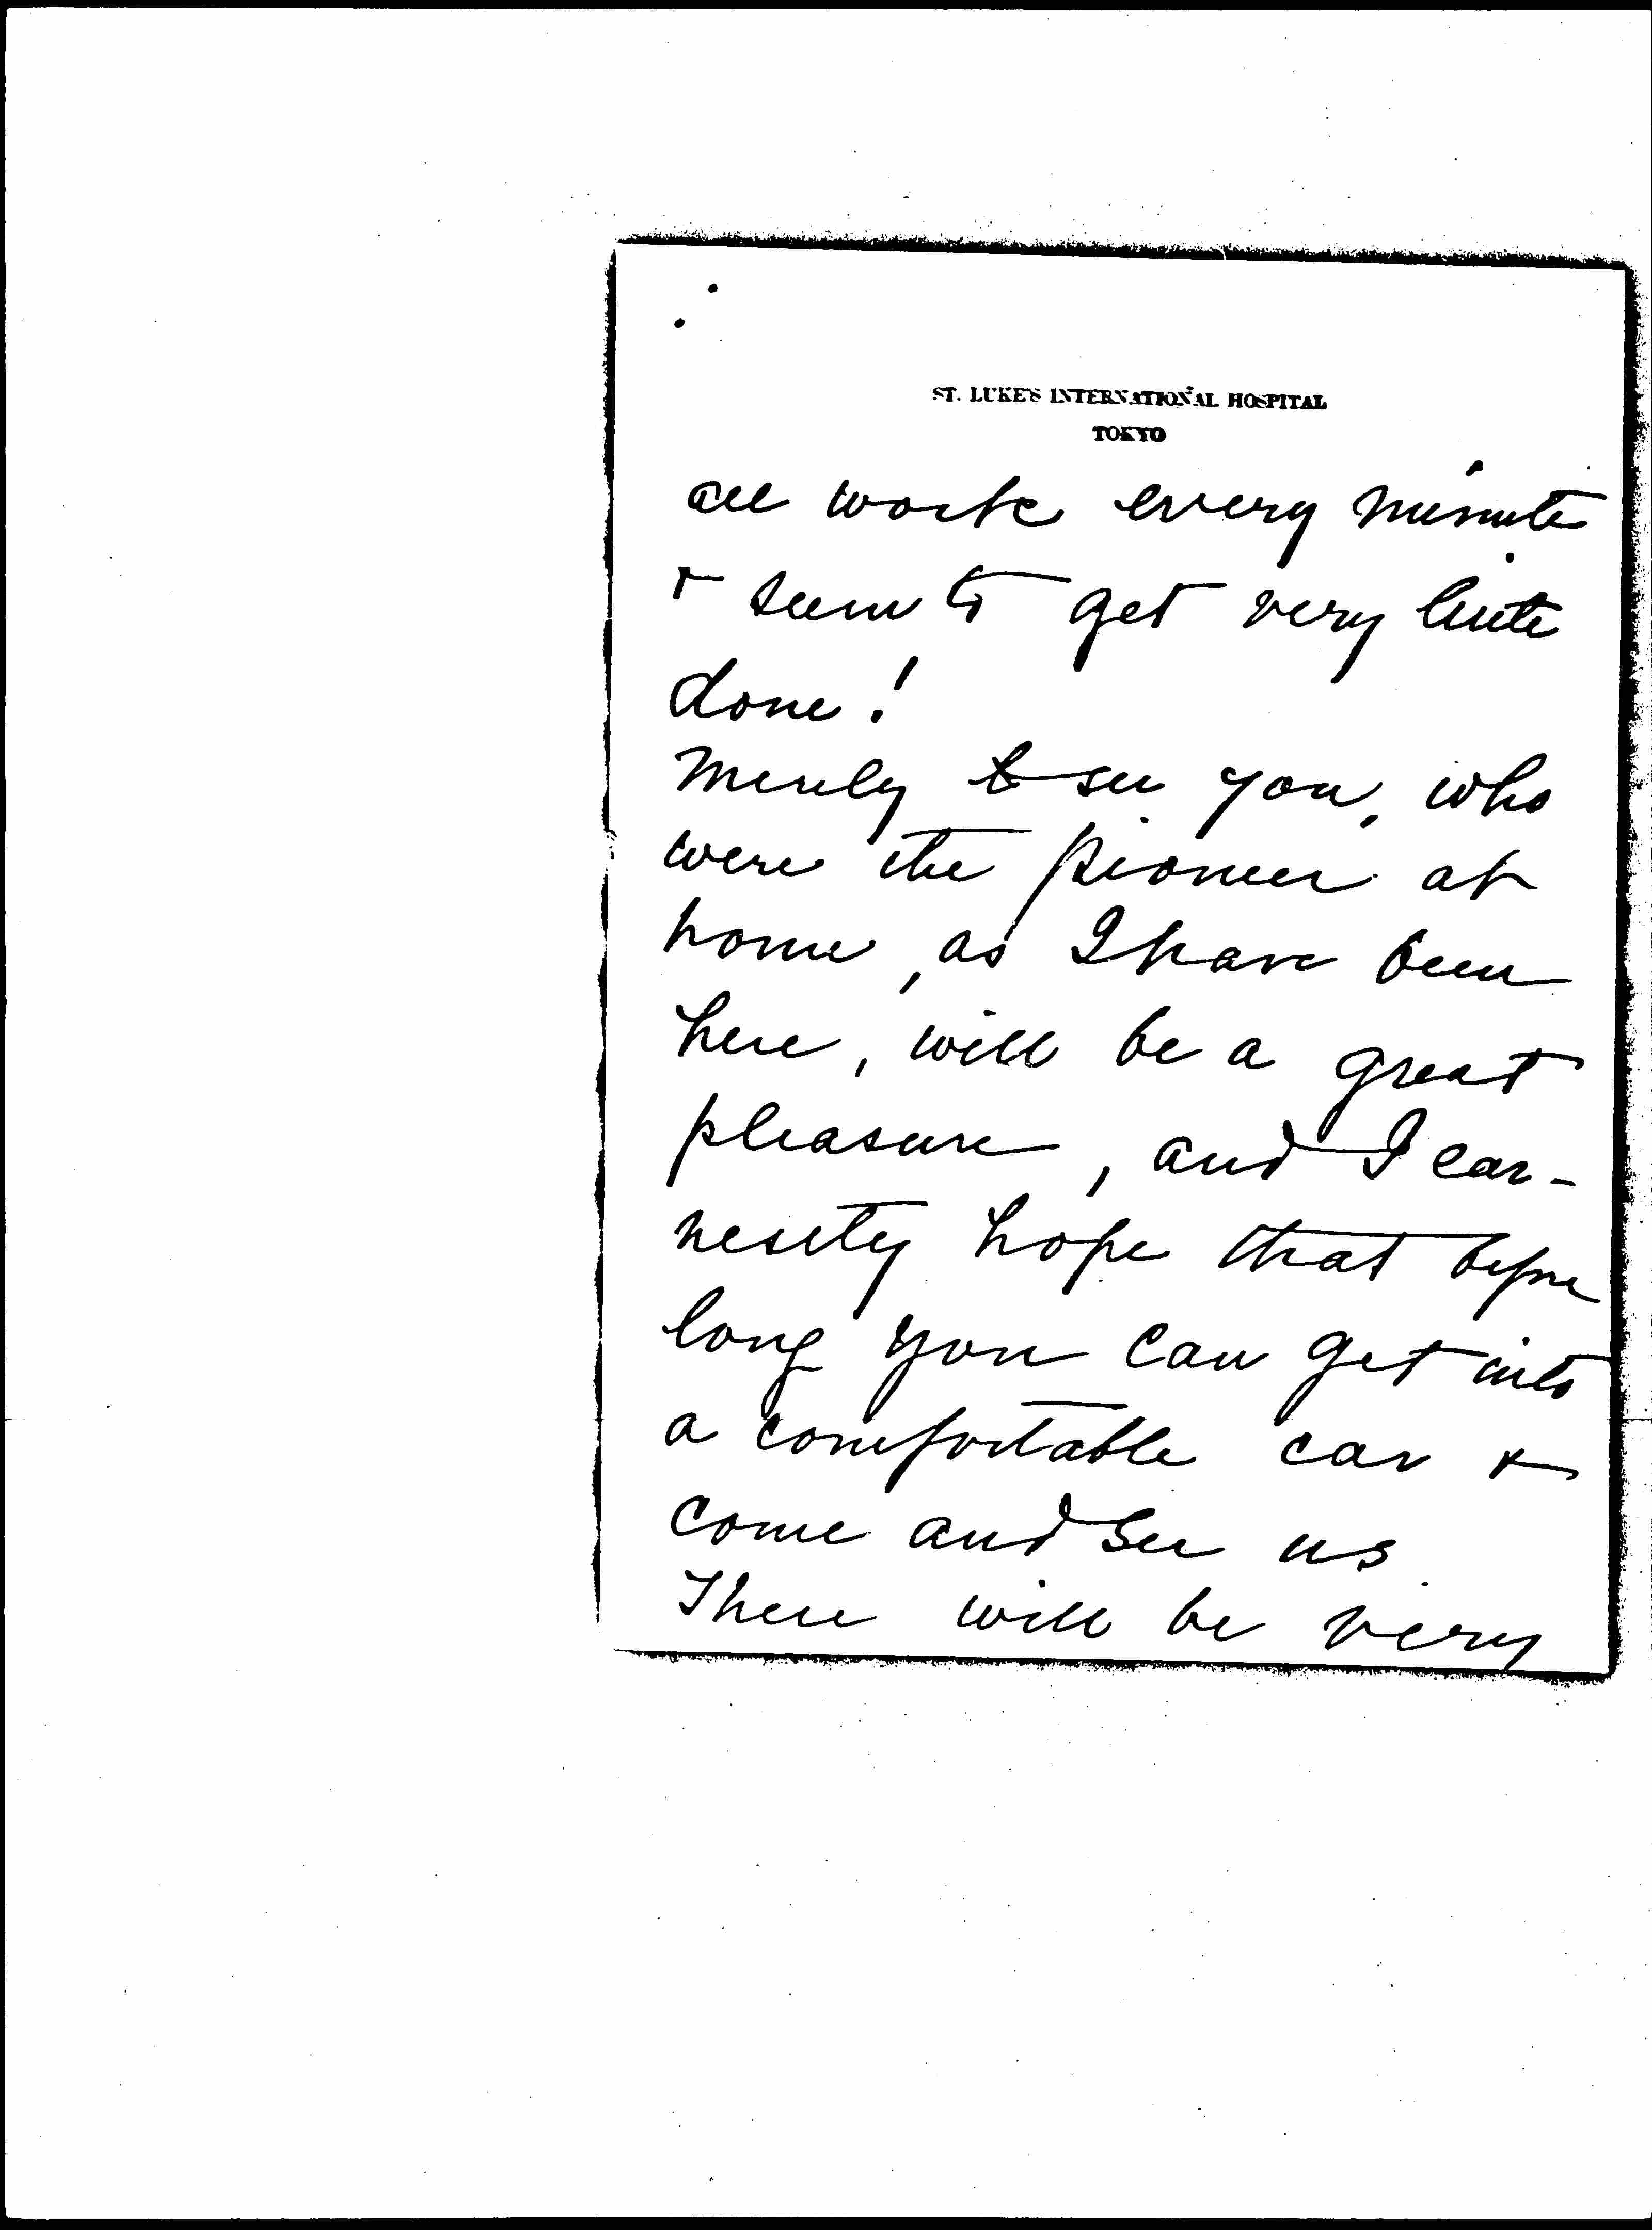 ST. LUKE'S INTERNATIONAL HOSPITAL
TOKYO
all work every minute
& seem to get very little
done!
Merely to see you, who
were the pioneer at
home, as I have been
here, will be a great
pleasure, and I ear-
nestly hope that before
long you can get into
a comfortable car &
come and see us.
There will be very